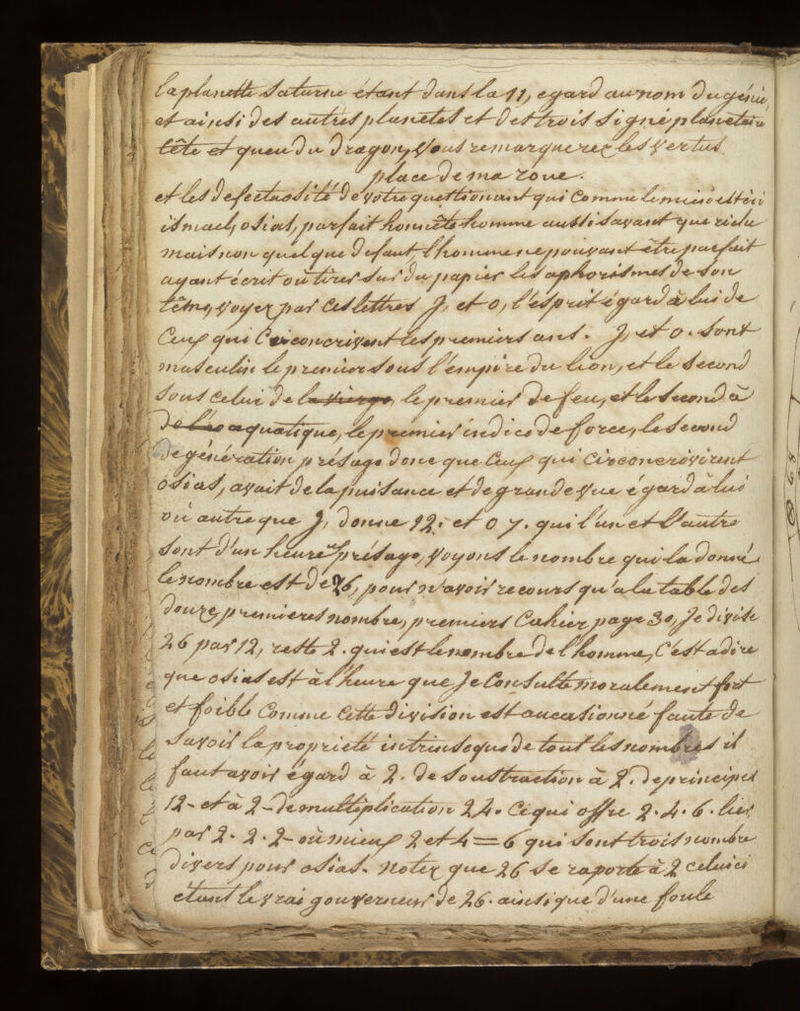 la planette Saturne étant dans la 11, egard au nom du génie,
et ainsi des autres planetes et des trois signe planetaire
tête et queu du dragon, Vous remarquerez les Vertus
place de ma roue.
et les defectuosité de votre questionant qui Comme
ismael, osias, parfait honnête homme aussi savant que riche
mais non quelque defaut, l'homme ne pouvant être parfait
ayant écrit où tirer sur du papier les aphorismes de son
têms, Voyez par Ces lettres J, et o, l'esprit égard à lui de
Ceux qui Circoncrivent les premiers ans. J, et o. sont
masculin le premier sous l'empire du lion, et le second
sous celui de la Vierge, le premier de feu, et le second à
de l'eo aquatique, le premier indice de force, le second
de génération présage donc que Ceux qui Circoncrivirent
osias, avait de la puisance et de grande Vue égard à lui
où autre que J, donne 12. et o 7. qui l'un et l'autre
sont d'un heure présage, Voyons le nombre qui la donné
le nombre est de 26, pour n'avoir recours qu'a la table des
douze premieres nombre, premiers Cahier page 30, Je divise
26 par 12, reste 2. qui est le nombre de l'homme, C'est adire
que osias est à l'heure que Je Consulte moralement fort
et foible Comme Cette division est aucasionné faute de
savoir la proprieté intrinseque de tout les nombres il
faut avoir égard à 2. de soustraction à 2. de principes
12 - et à 2 - de multiplication 24. Ce qui offre 2. 4. 6. lier
par 2. 2. 2 - où mieux 2 et 4 = 6 qui sont trois nombre
divers pour osias. Notez que 26 se raporte à 2 celui ci
étant le Vrai gouverneur de 26. ainsi que d'une foule